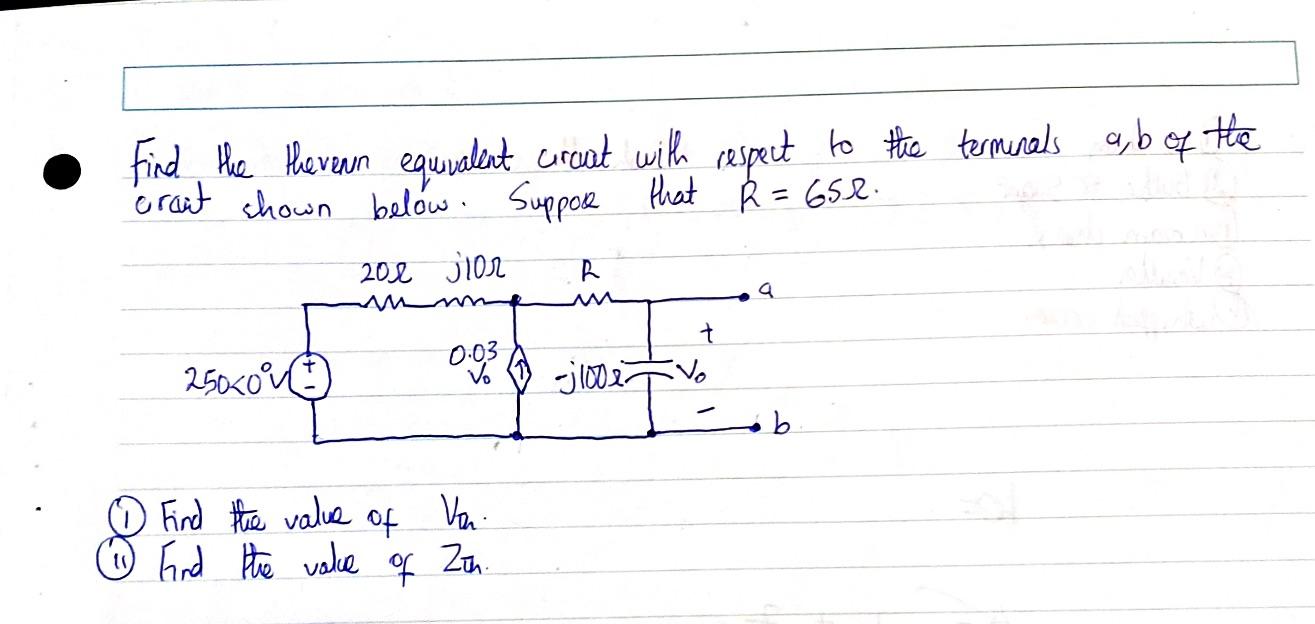 Find the thevenin equivalent circuit with respect to the terminals a,b of the
circuit shown below. Suppose that R = 65Ω.
20Ω j10Ω R
a
+
0.03
Vo
250<0°V
+
-
-j100Ω
Vo
-
b
(i) Find the value of Vth.
(ii) Find the value of Zth.